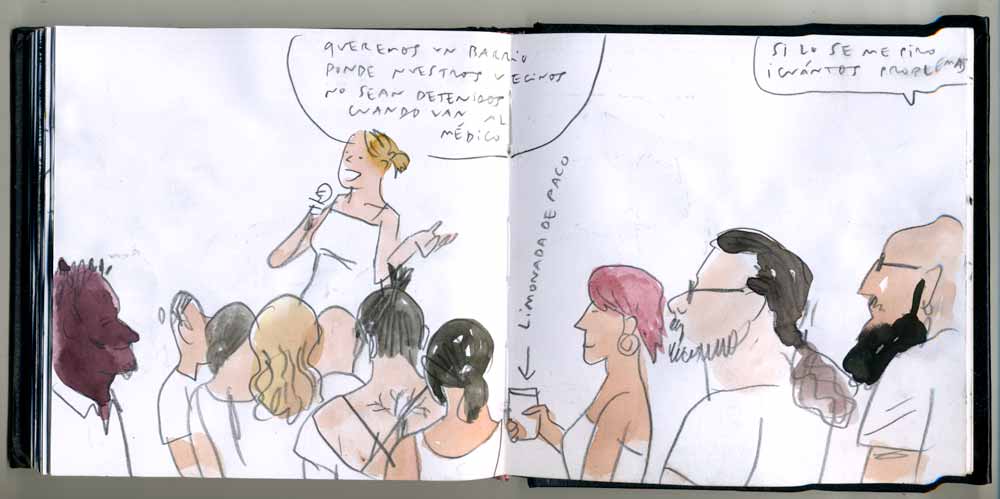 QUEREMOS UN BARRIO
DONDE NUESTROS VECINOS
NO SEAN DETENIDOS
CUANDO VAN AL
MÉDICO
SI LO SE ME PIRO
¡CUÁNTOS PROBLEMAS
LIMONADA DE PACO